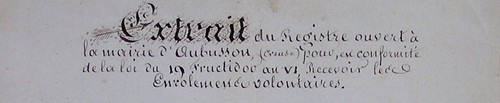 Extrait du Registre ouvert à
la mairie d'Aubusson, (Creuse) pour, en conformité
de la loi du 19 Fructidor an VI, Recevoir les
Enrolements volontaires.